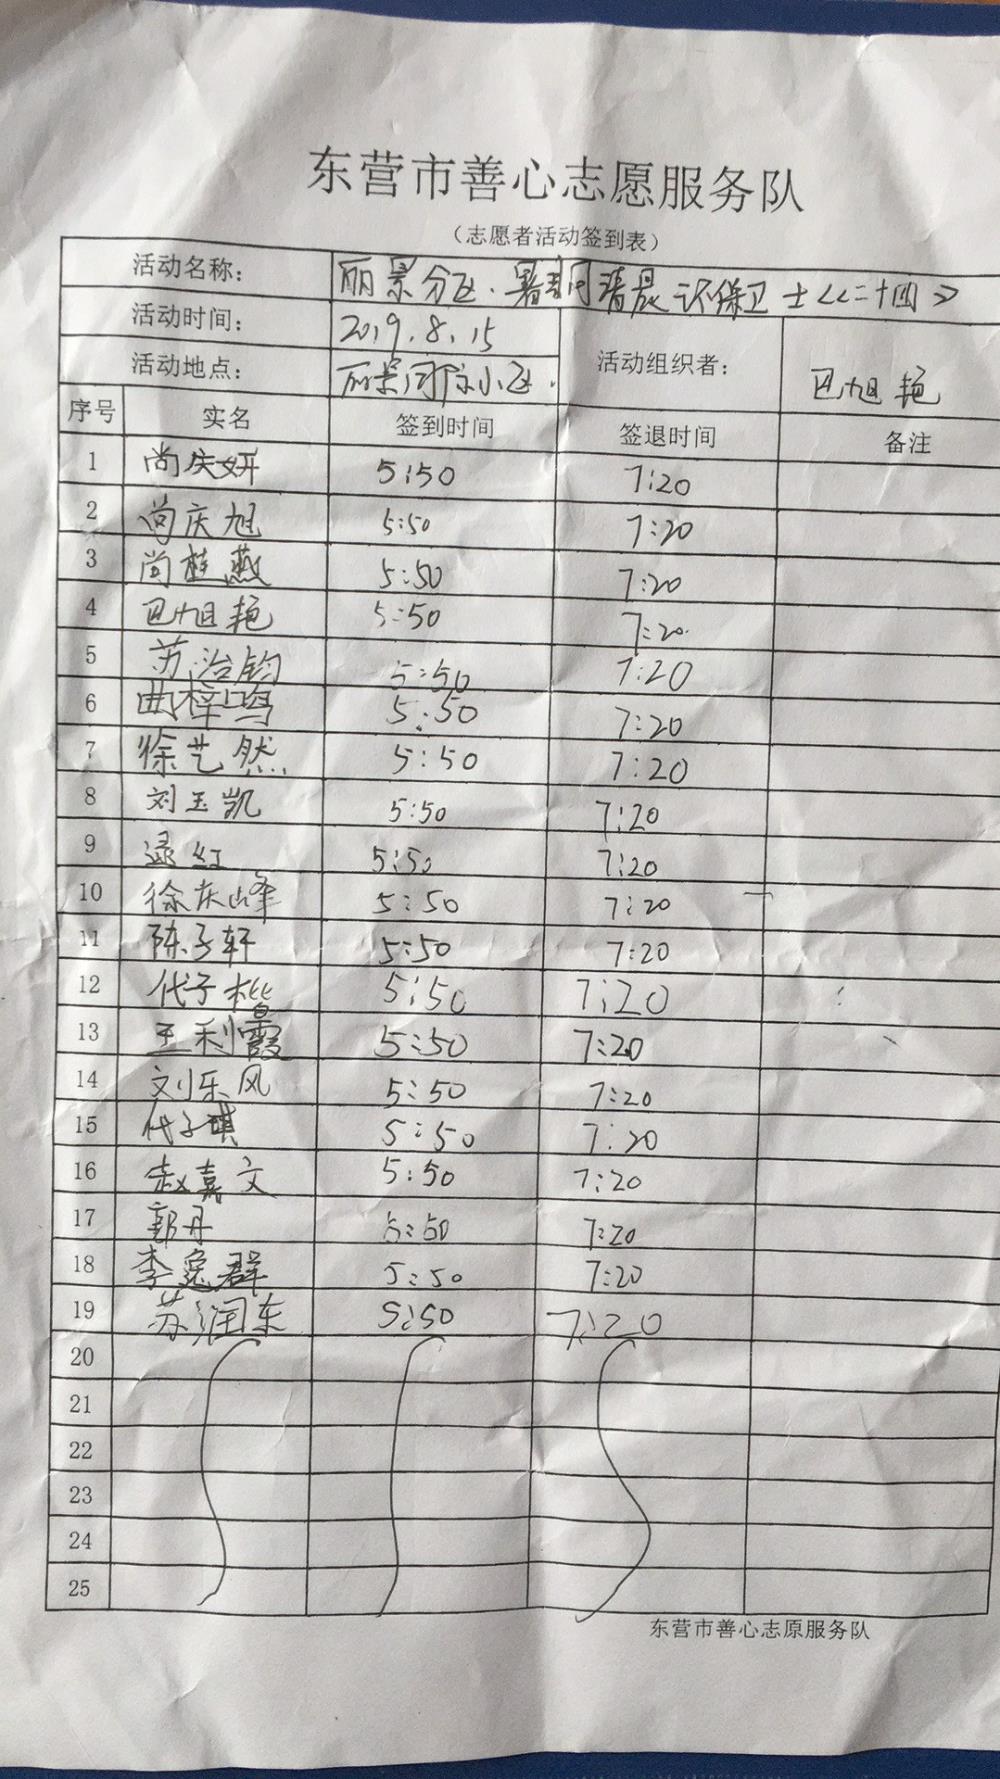 东营市善心志愿服务队
（志愿者活动签到表）
活动名称： 丽景分队.暑期清晨环保卫士《二十四》
活动时间： 2019.8.15
活动地点： 丽景 小区. 活动组织者： 巴旭艳
序号 实名 签到时间 签退时间 备注
1 尚庆妍 5:50 7:20
2 尚庆旭 5:50 7:20
3 尚桂燕 5:50 7:20
4 巴旭艳 5:50 7:20
5 苏治钧 5:50 7:20
6 曲梓鸣 5:50 7:20
7 徐艺然 5:50 7:20
8 刘玉凯 5:50 7:20
9 逯红 5:50 7:20
10 徐庆峰 5:50 7:20
11 陈子轩 5:50 7:20
12 代子 5:50 7:20
13 王利霞 5:50 7:20
14 刘乐风 5:50 7:20
15 代子琪 5:50 7:20
16 赵嘉文 5:50 7:20
17 郭丹 5:50 7:20
18 李 群 5:50 7:20
19 苏润东 5:50 7:20
20
21
22
23
24
25
东营市善心志原服务队